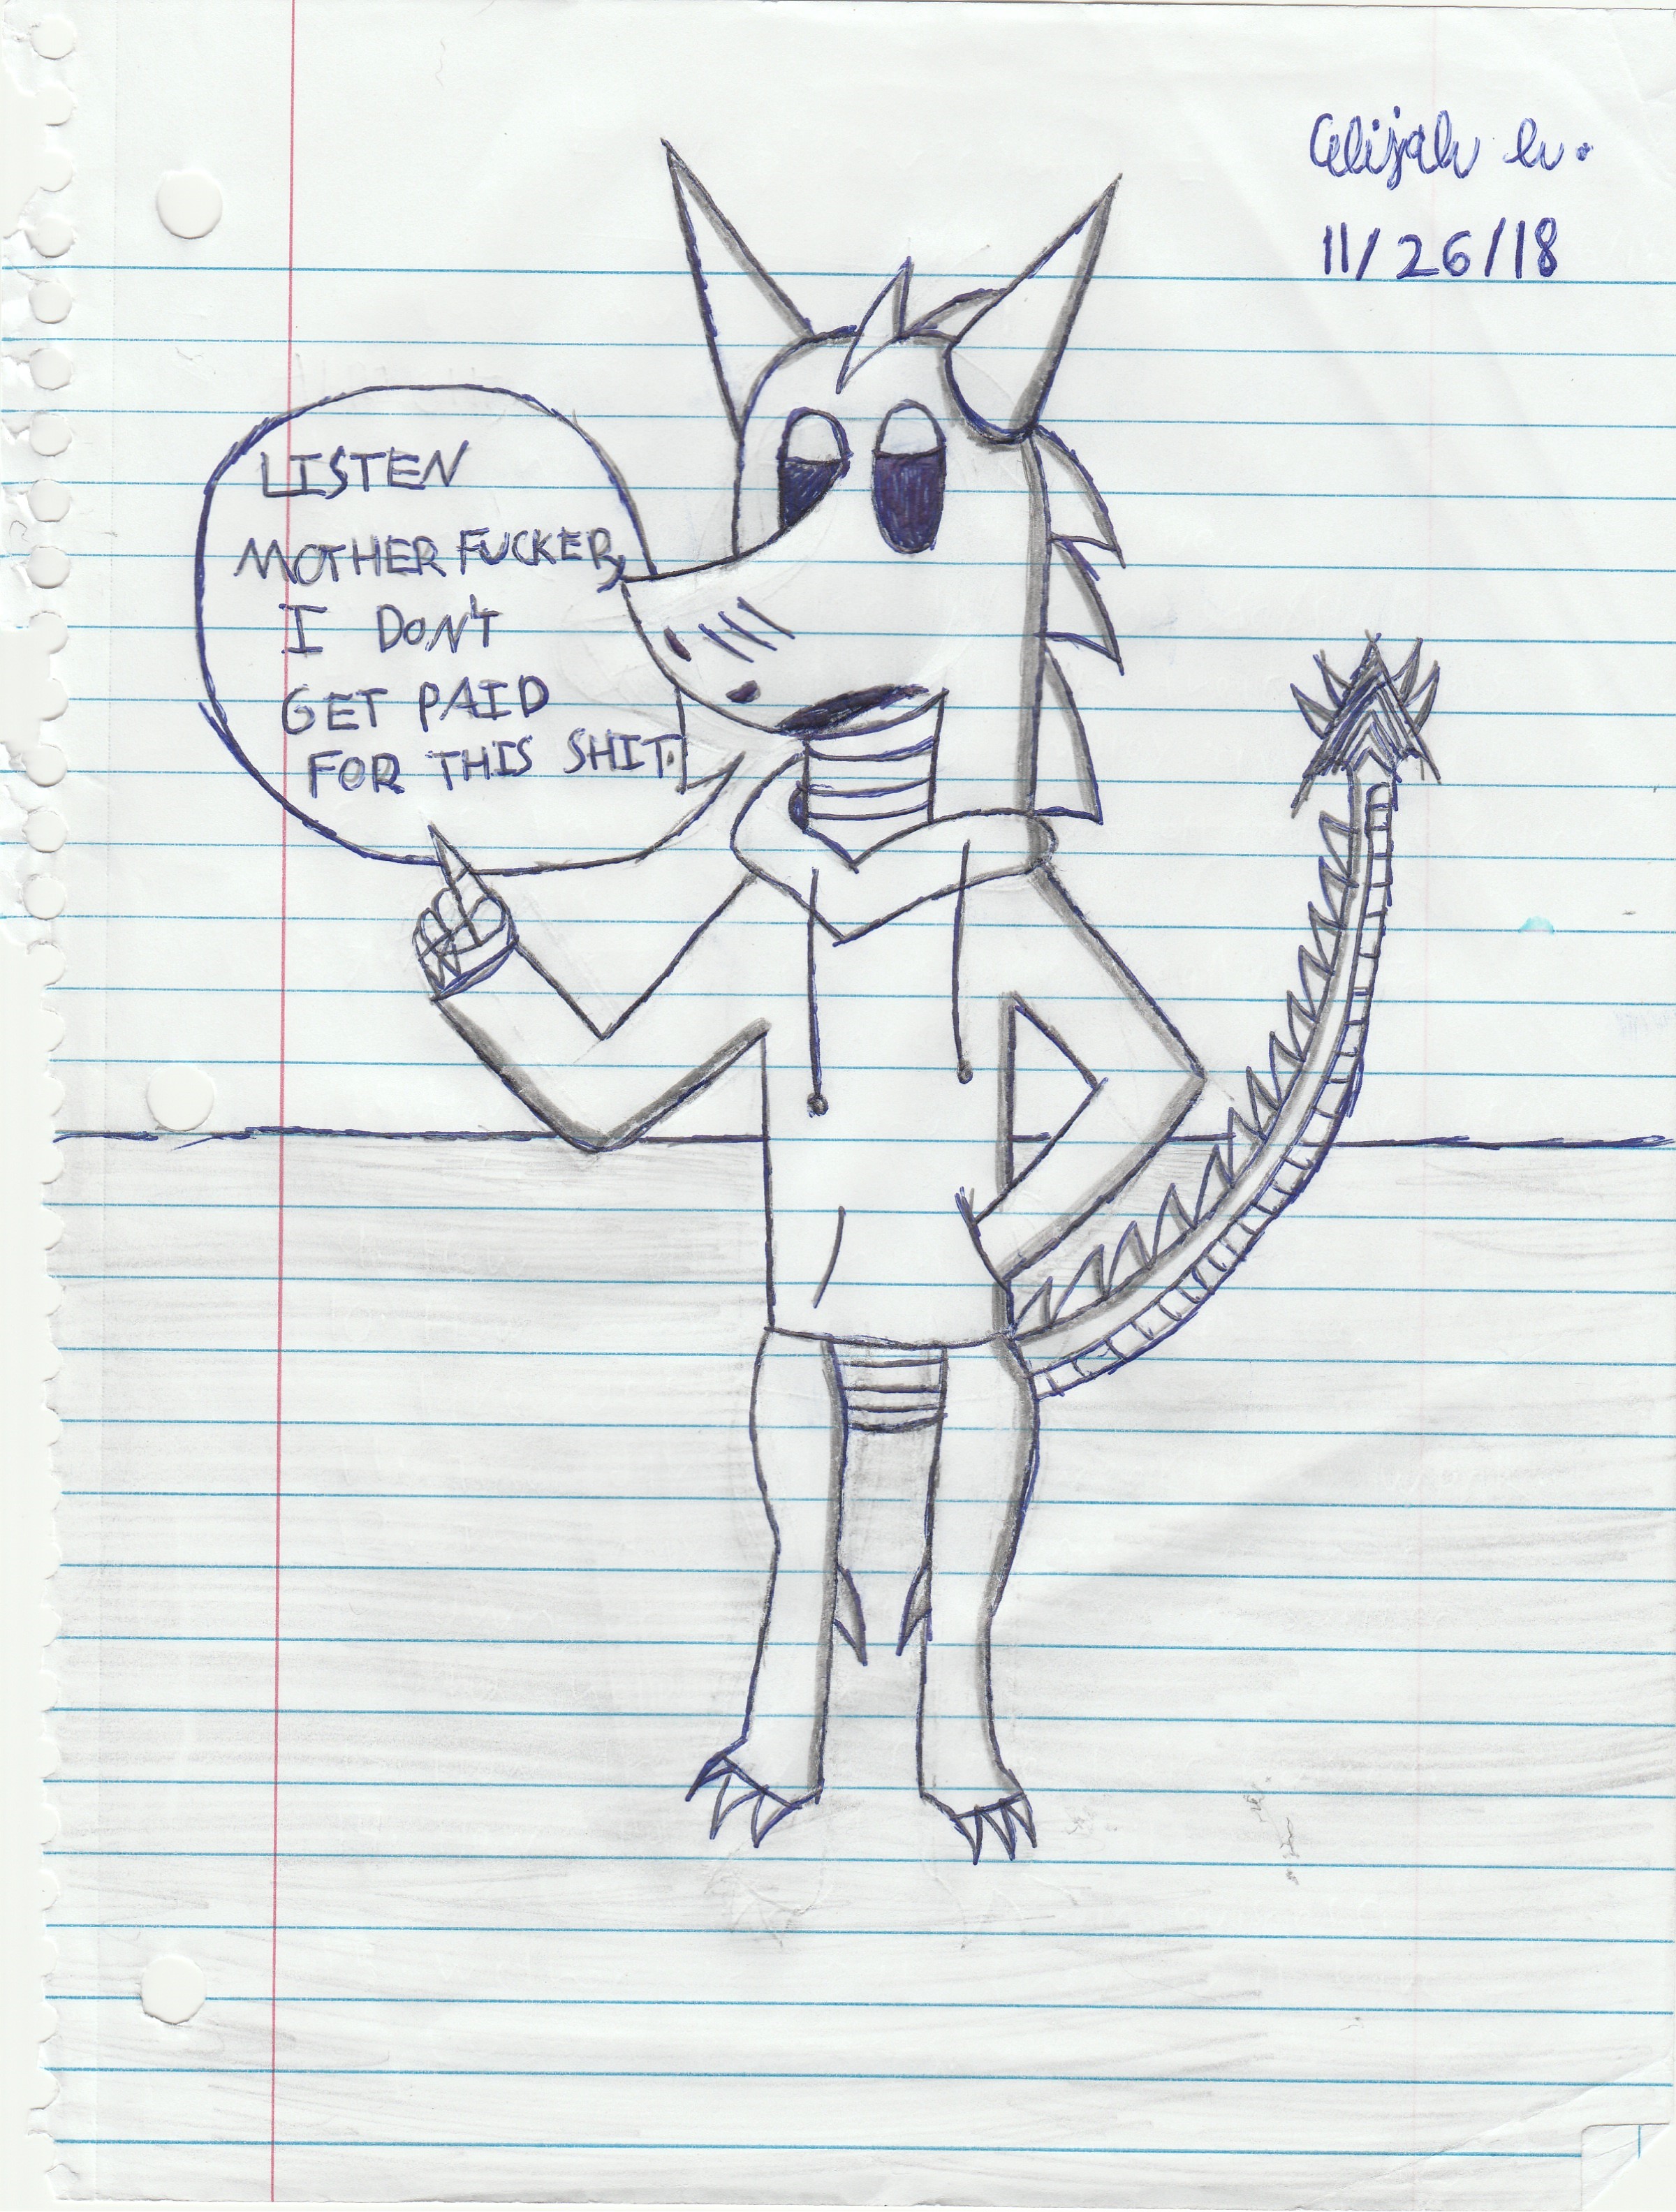 Elijah W.
11/26/18
LISTEN
MOTHER FUCKER,
I DON'T
GET PAID
FOR THIS SHIT.